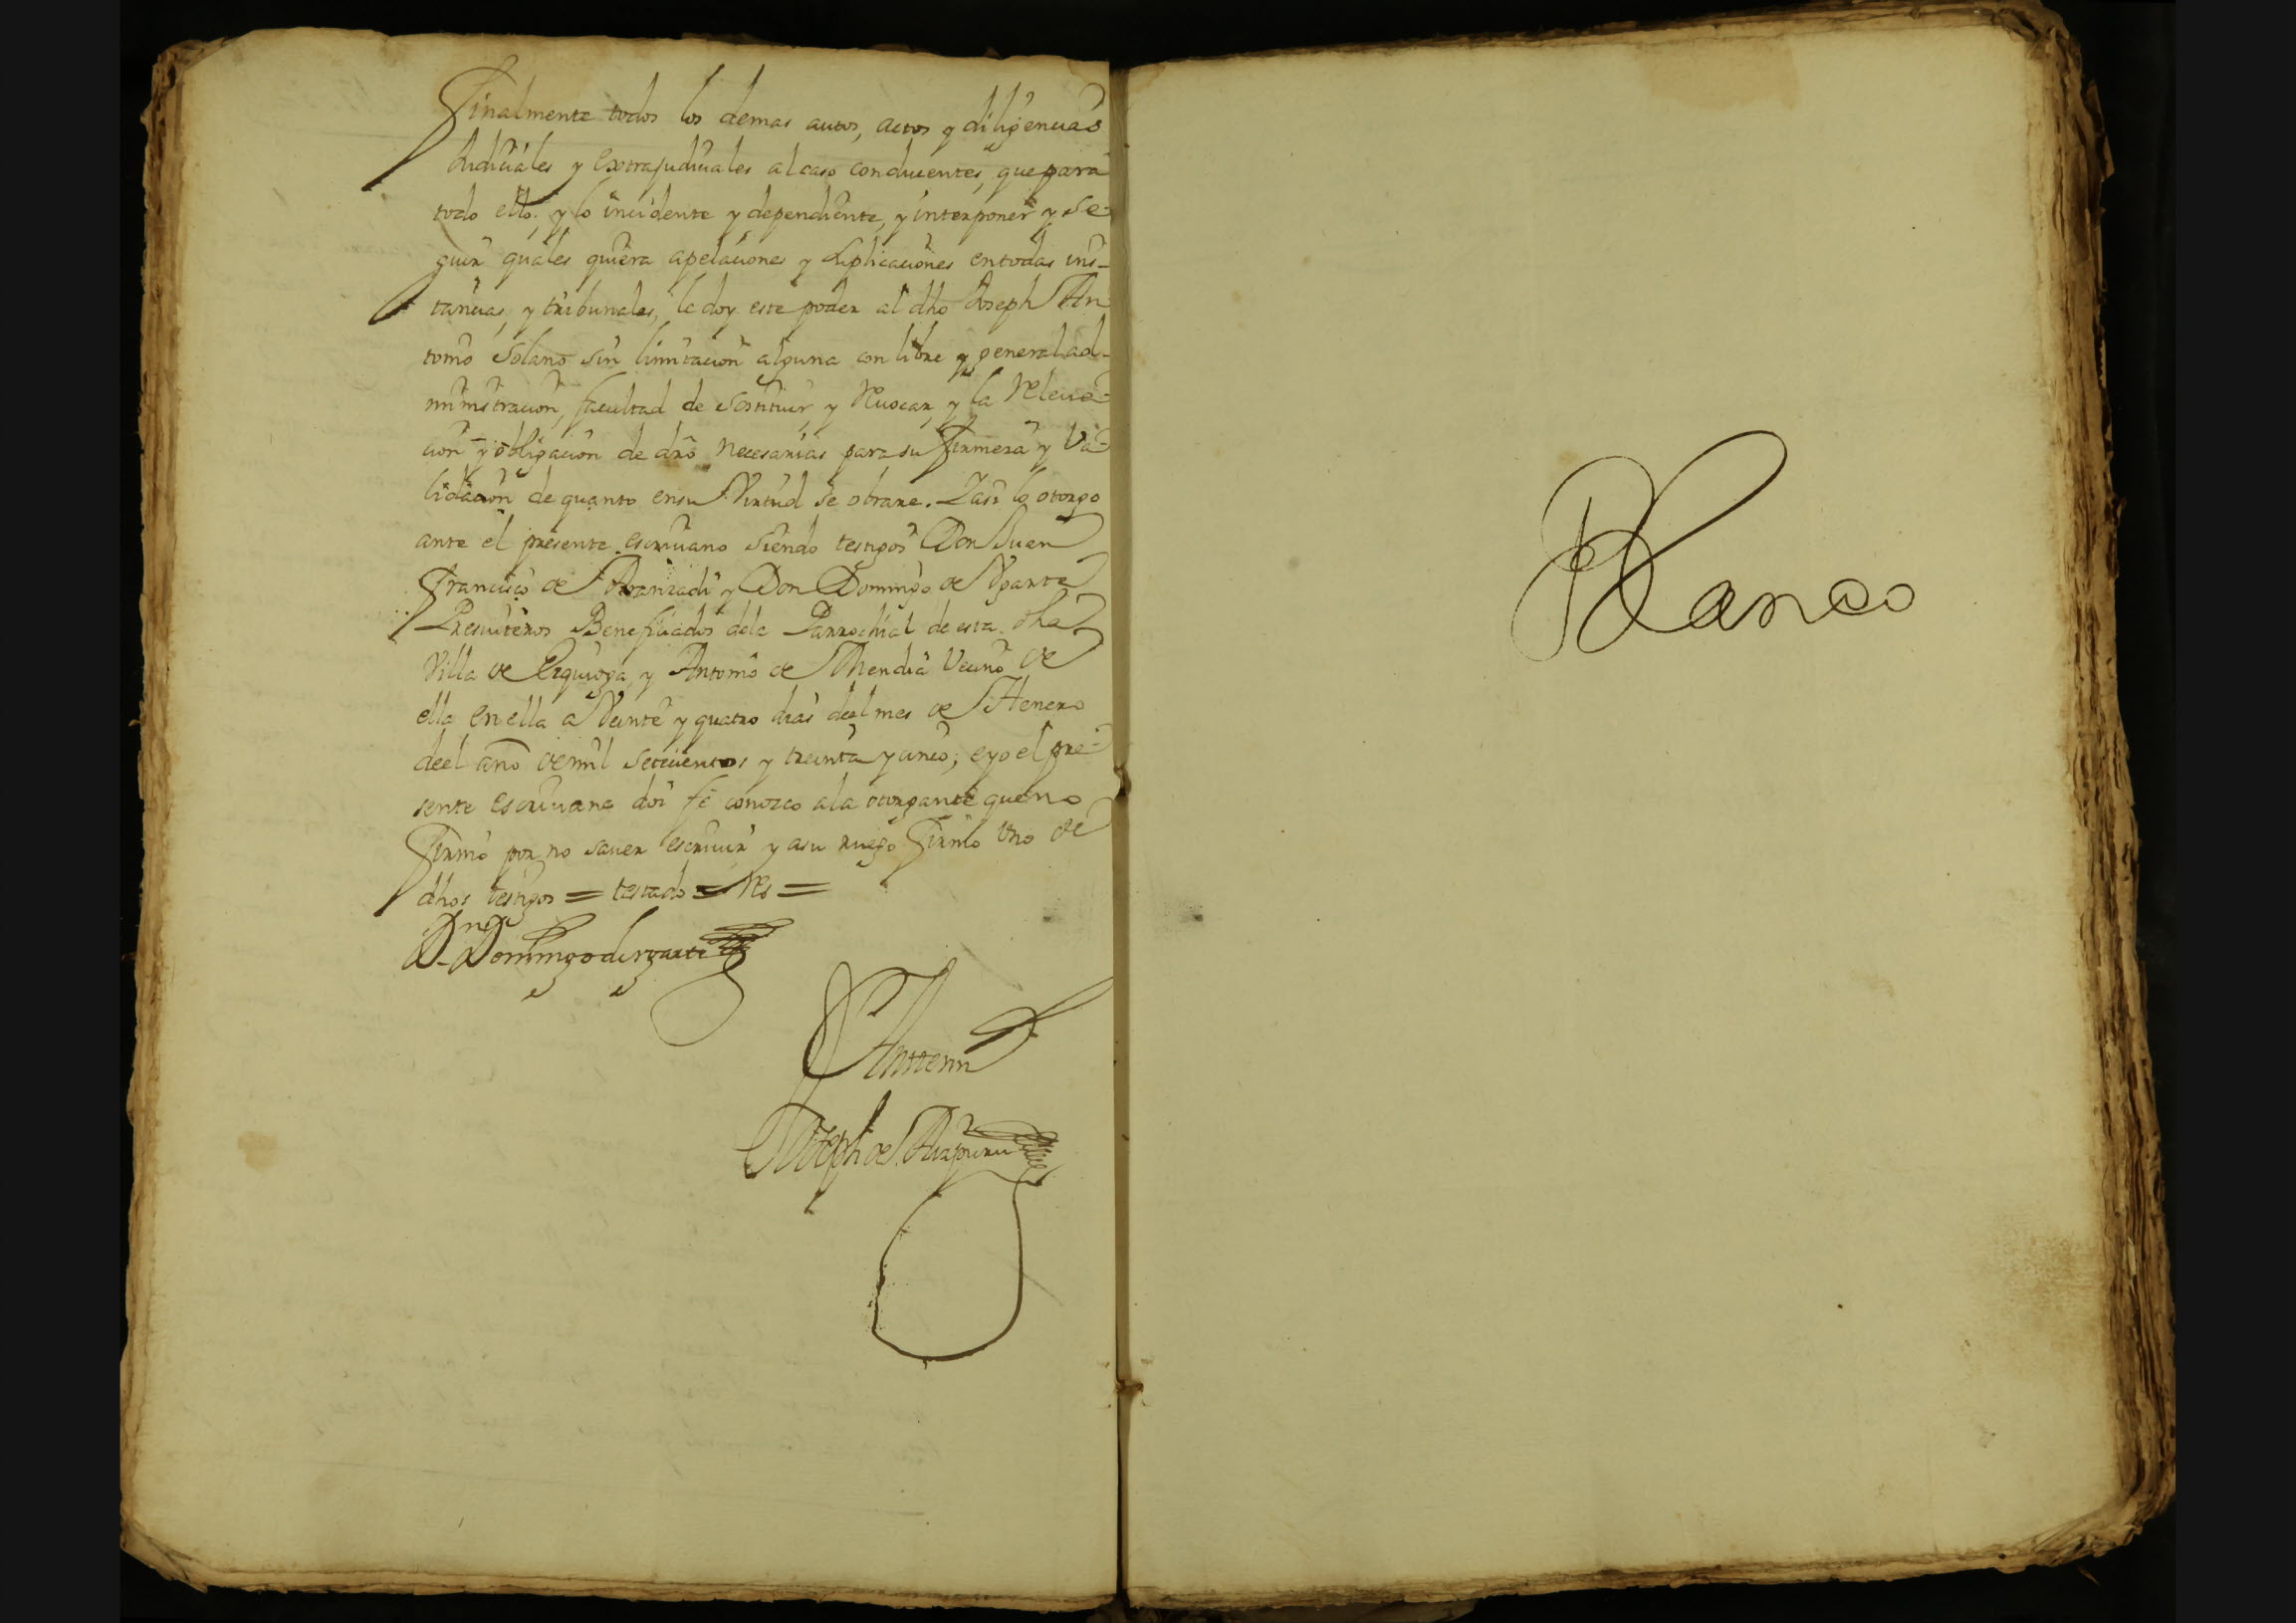 Finalmente todos los demas autos, actos y diligencias
Judiciales y extrajudiciales al caso conducentes, que para
todo ello, y lo incidente y dependiente, y interponer y se-
guir quales quiera apelaciones y suplicaciones en todas ins-
tancias, y tribunales, le doy este poder al dho Joseph An
tonio Solano sin limitacion alguna con libre y general ad-
ministracion, facultad de sostituir, y Revocar, y la Releva-
cion y obligacion de dro necesarias para su firmeza y Va-
lidacion de quanto en su Virtud se obrare. Y asi lo otorgo
ante el presente escrivano siendo testigos Don Juan
Francisco de Aranzadi y Don Domingo de Ugarte
Presviteros Beneficiados dela Parrochial de esta dha
Villa de Ezquioga, y Antonio de Mendia Vecino de
ella en ella a Veinte y quatro dias deel mes de Henero
deel año de mil setecientos y treinta y cinco; e yo el pre-
sente escrivano doi fe conozco a la otorgante que no
Firmo por no saver escrivir y a su ruego Firmo Uno de
dhos testigos = testado = Res =
Dn Domingo de Ugarte
Anttemi
Joseph de Aizpuru
Blanco